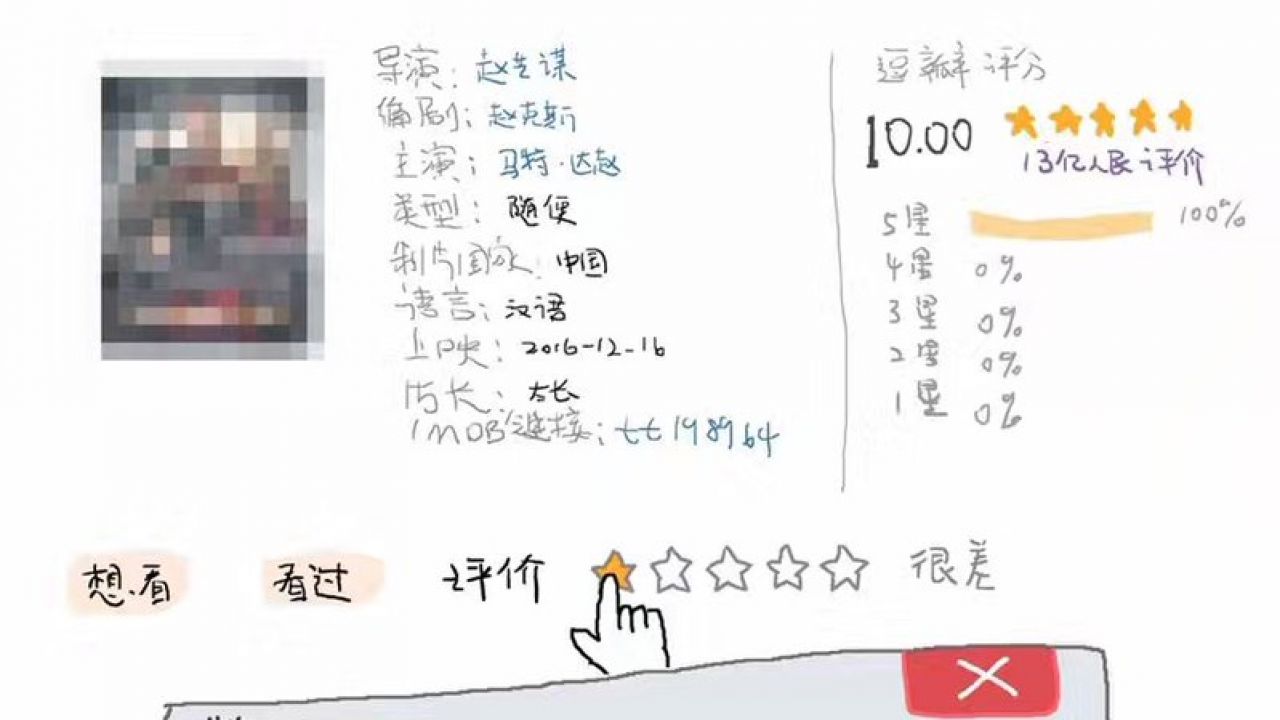 导演：赵先谋
编剧：赵克斯
主演：马特·达赵
类型：随便
制片国家：中国
语言：汉语
上映：2016-12-16
片长：太长
IMDB链接：tt198964
逗瓣评分
10.00
13亿人民评价
5星 100%
4星 0%
3星 0%
2星 0%
1星 0%
想看 看过 评价 很差